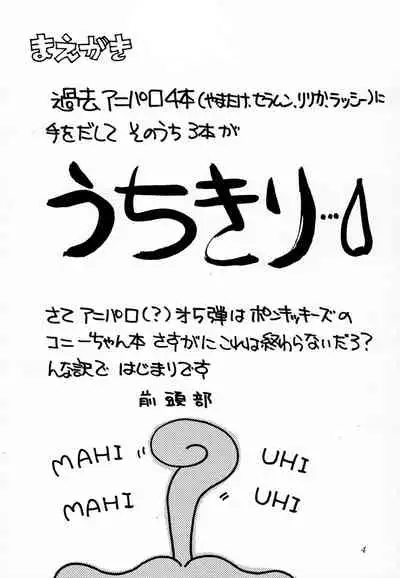 まえがき
過去アニパロ4本(やまたけ、セラムン、リリカ、ラッシー)に
手をだして そのうち 3本が
うちきり…
さて アニパロ(?)才5弾は ポンキッキーズの
コニーちゃん本 さすがに これは終わらないだろ?
んな訳で はじまりです
前頭部
MAHI
UHI
MAHI
UHI
4